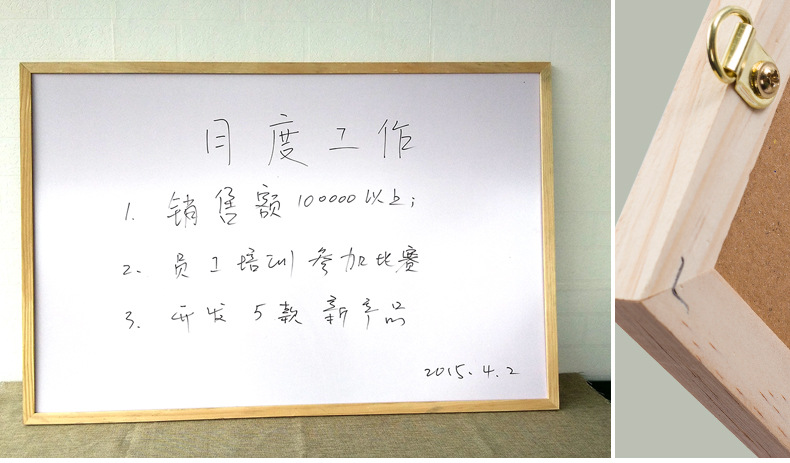 月度工作
1. 销售额100000以上;
2. 员工培训参加比赛
3. 开发5款新产品
2015.4.2